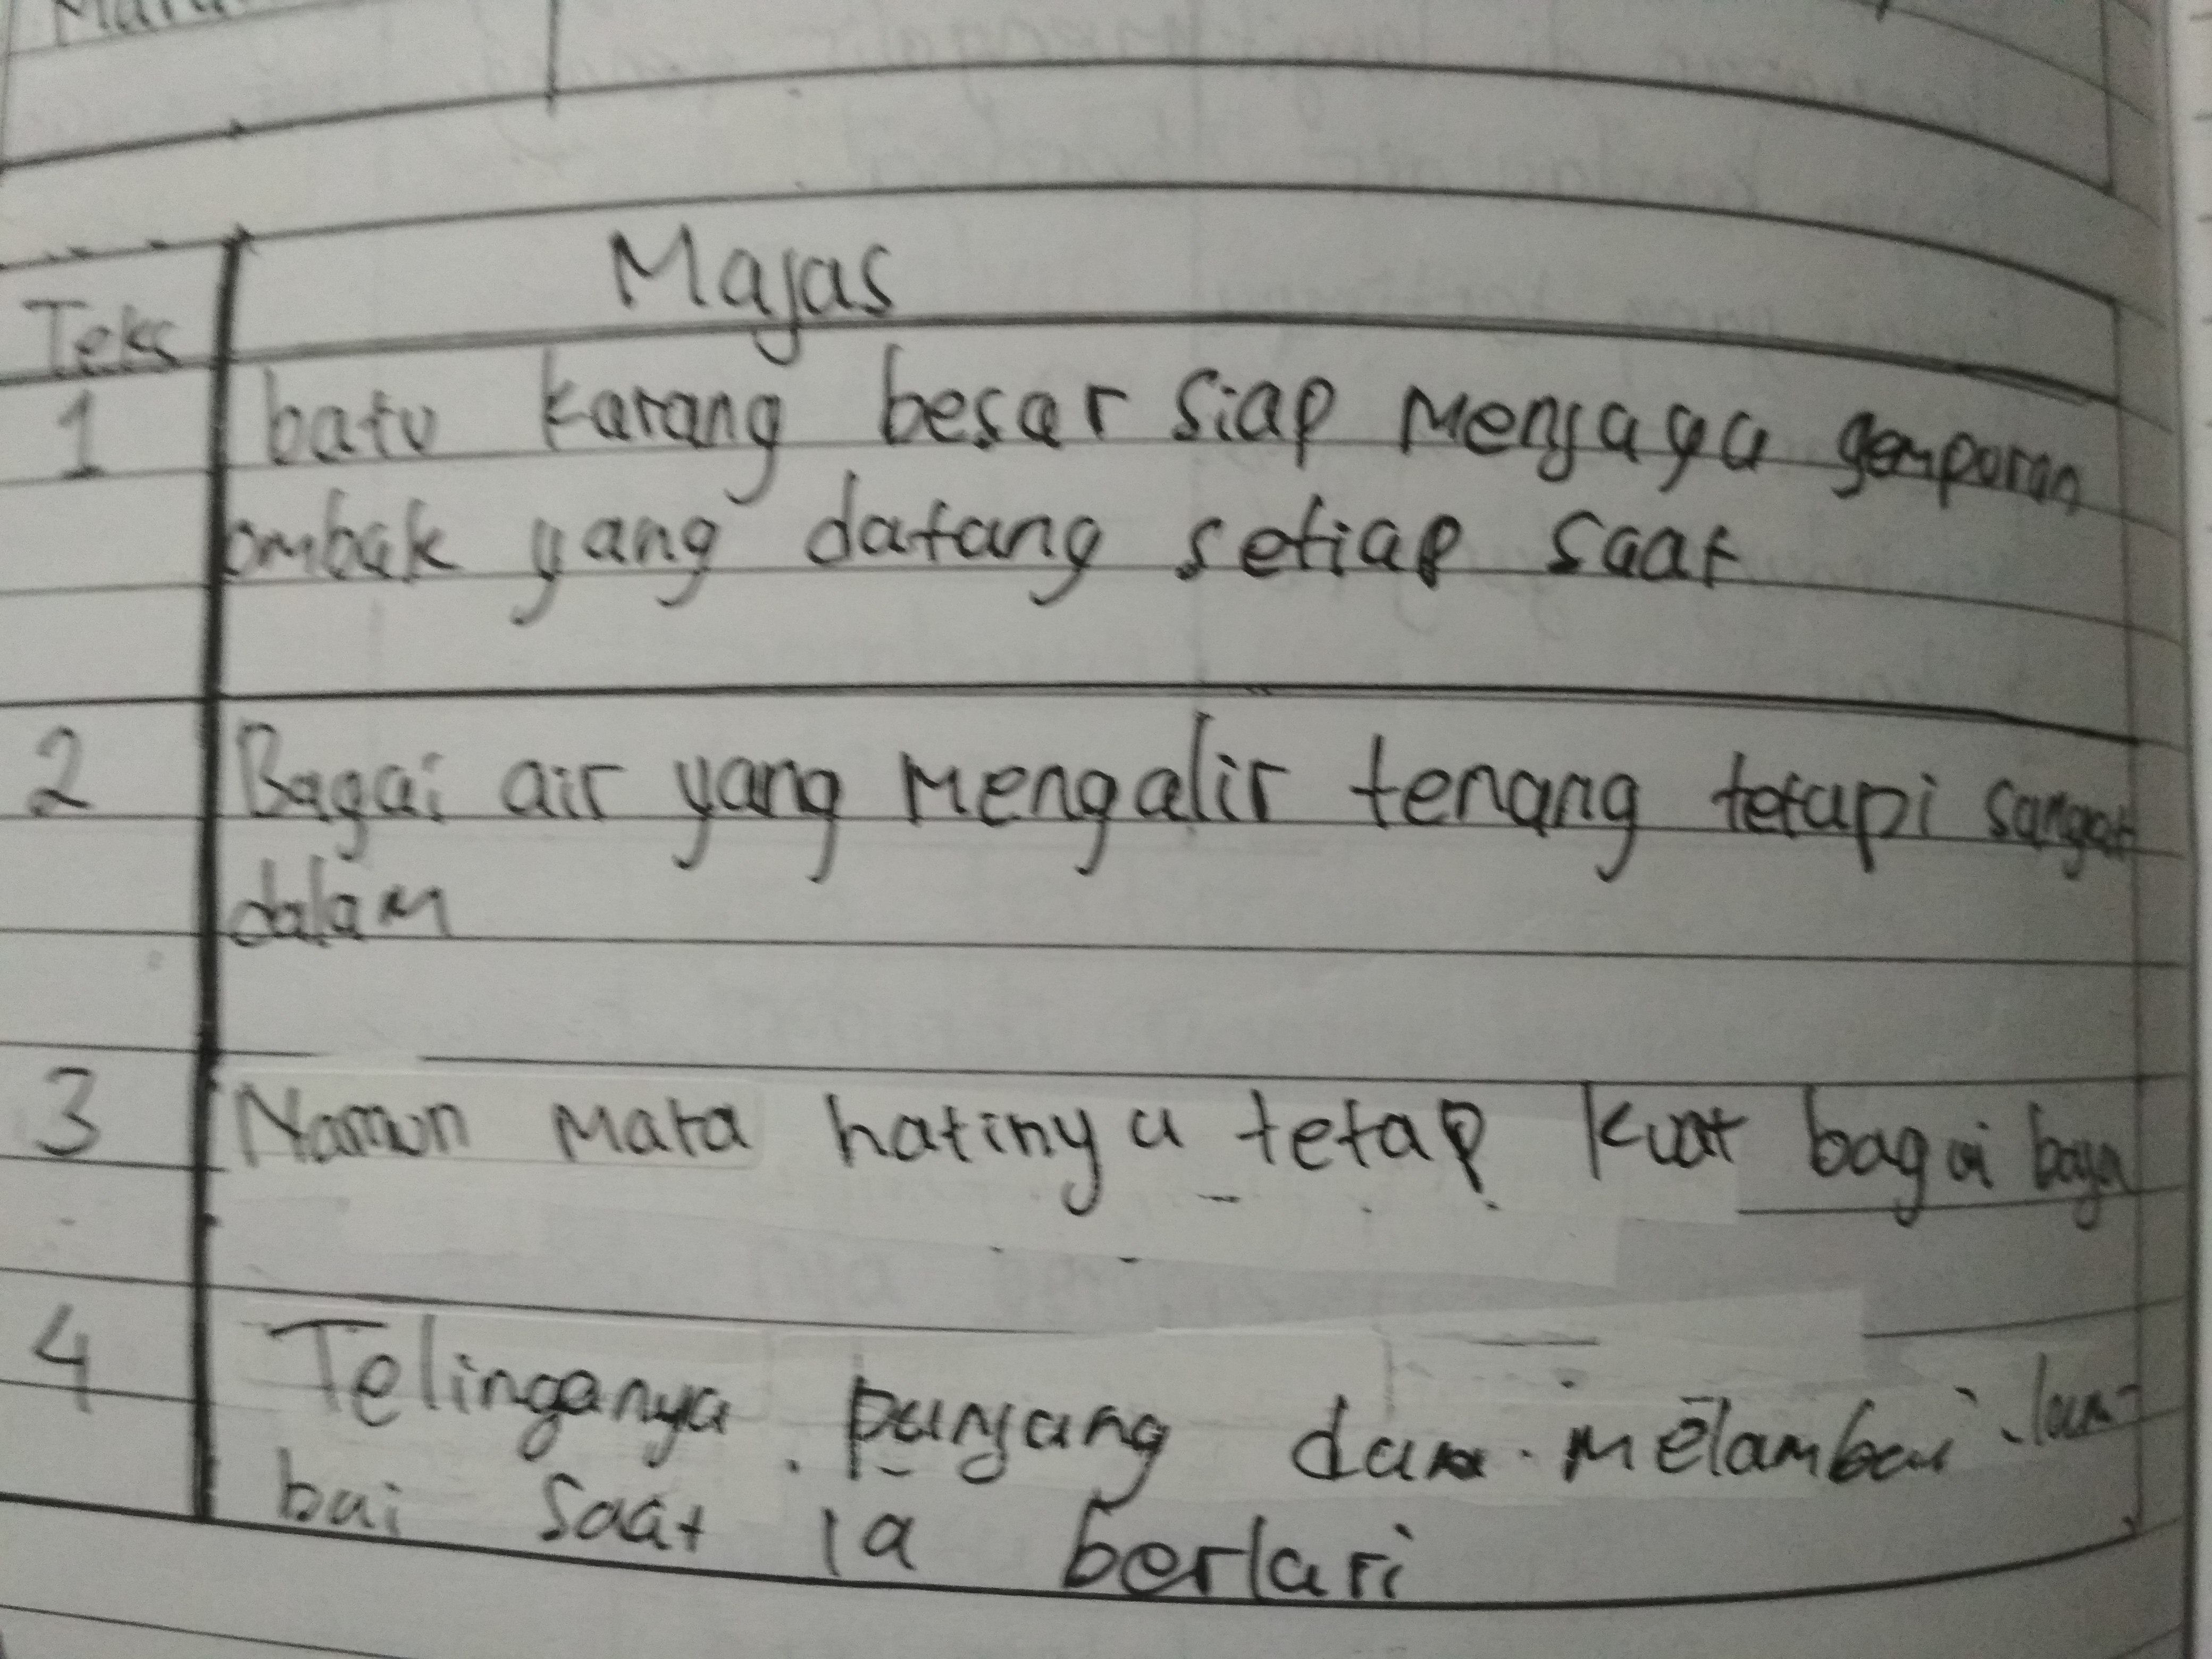 Teks
Majas
1
batu karang besar siap menjaga gemporan
ombak yang datang setiap saat
2
Bagai air yang mengalir tenang tetapi sangat
dalam
3
Namun mata hatinya tetap kuat bagai baja
4
Telinganya panjang dan melambai-lam-
bai saat ia berlari